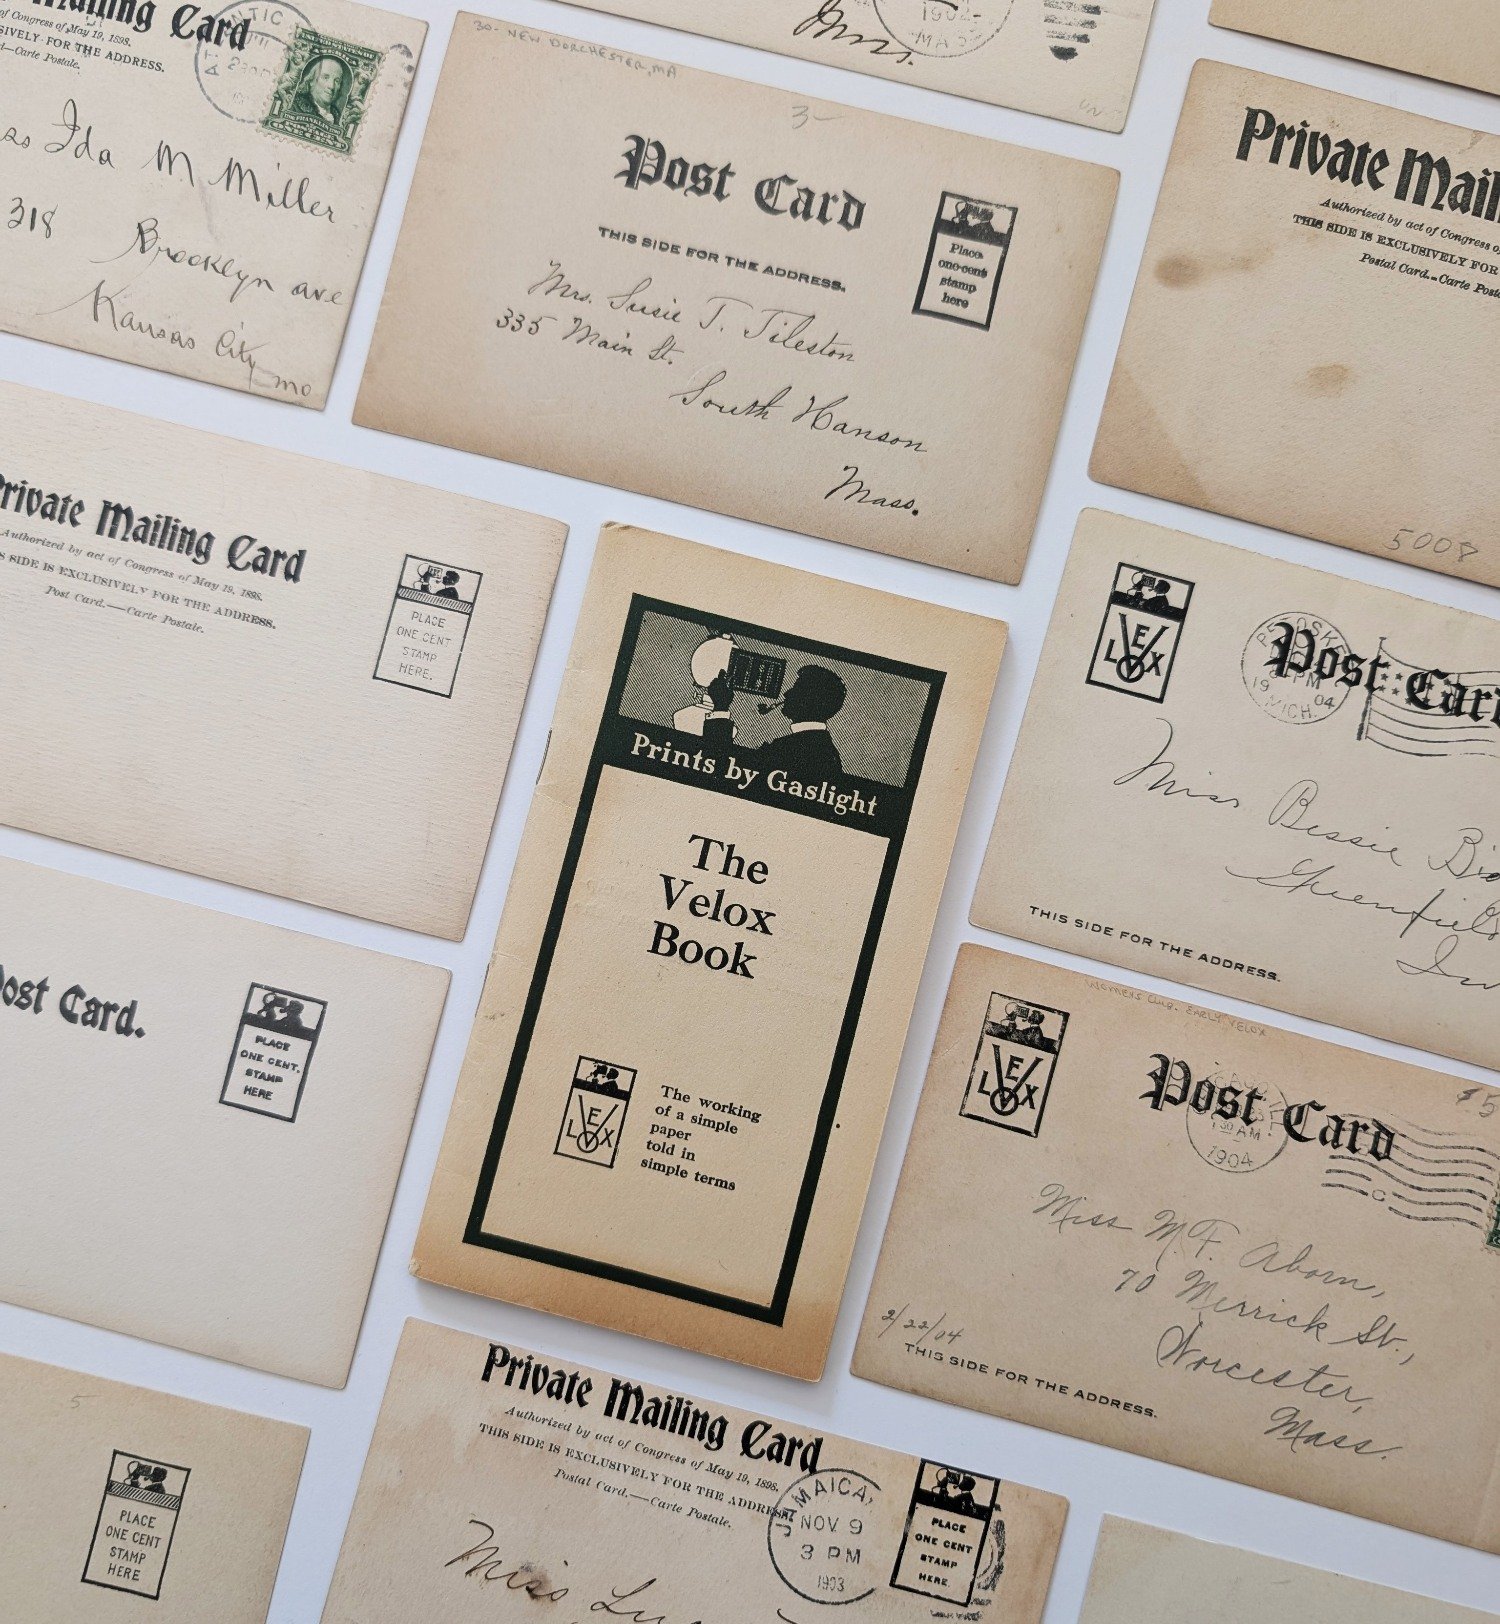 Private Mailing Card
of Congress of May 19, 1898.
EXCLUSIVELY FOR THE ADDRESS.
—Carte Postale.
1
ONE CENT
Ida M Miller
318
Brooklyn ave
Kansas City
mo
Mass.
1904
30- NEW DORCHESTER, MA
3-
Post Card
THIS SIDE FOR THE ADDRESS.
Place
one-cent
stamp
here
Mrs. Susie T. Tileston
335 Main St.
South Hanson
Mass.
Private Mail
Authorized by act of Congress o
THIS SIDE IS EXCLUSIVELY FOR
Postal Card.--Carte Posta
5008
Private Mailing Card
Authorized by act of Congress of May 19, 1898.
SIDE IS EXCLUSIVELY FOR THE ADDRESS.
Post Card.—Carte Postale.
PLACE
ONE CENT
STAMP
HERE.
Prints by Gaslight
The
Velox
Book
VELOX
The working
of a simple
paper
told in
simple terms
VELOX
Post Card
19 04
MICH.
Miss Bessie
Greenfield
THIS SIDE FOR THE ADDRESS.
Post Card.
PLACE
ONE CENT.
STAMP
HERE
WOMENS CLUB. EARLY VELOX
$5
VELOX
Post Card
AM
1904
C
Miss M. F. Aborn,
70 Merrick St.,
Worcester,
Mass.
2/22/04
THIS SIDE FOR THE ADDRESS.
5
PLACE
ONE CENT
STAMP
HERE
Private Mailing Card
Authorized by act of Congress of May 19, 1898.
THIS SIDE IS EXCLUSIVELY FOR THE ADDRESS.
Postal Card.—Carte Postale.
JAMAICA,
NOV 9
3 PM
1903
PLACE
ONE CENT
STAMP
HERE.
Miss